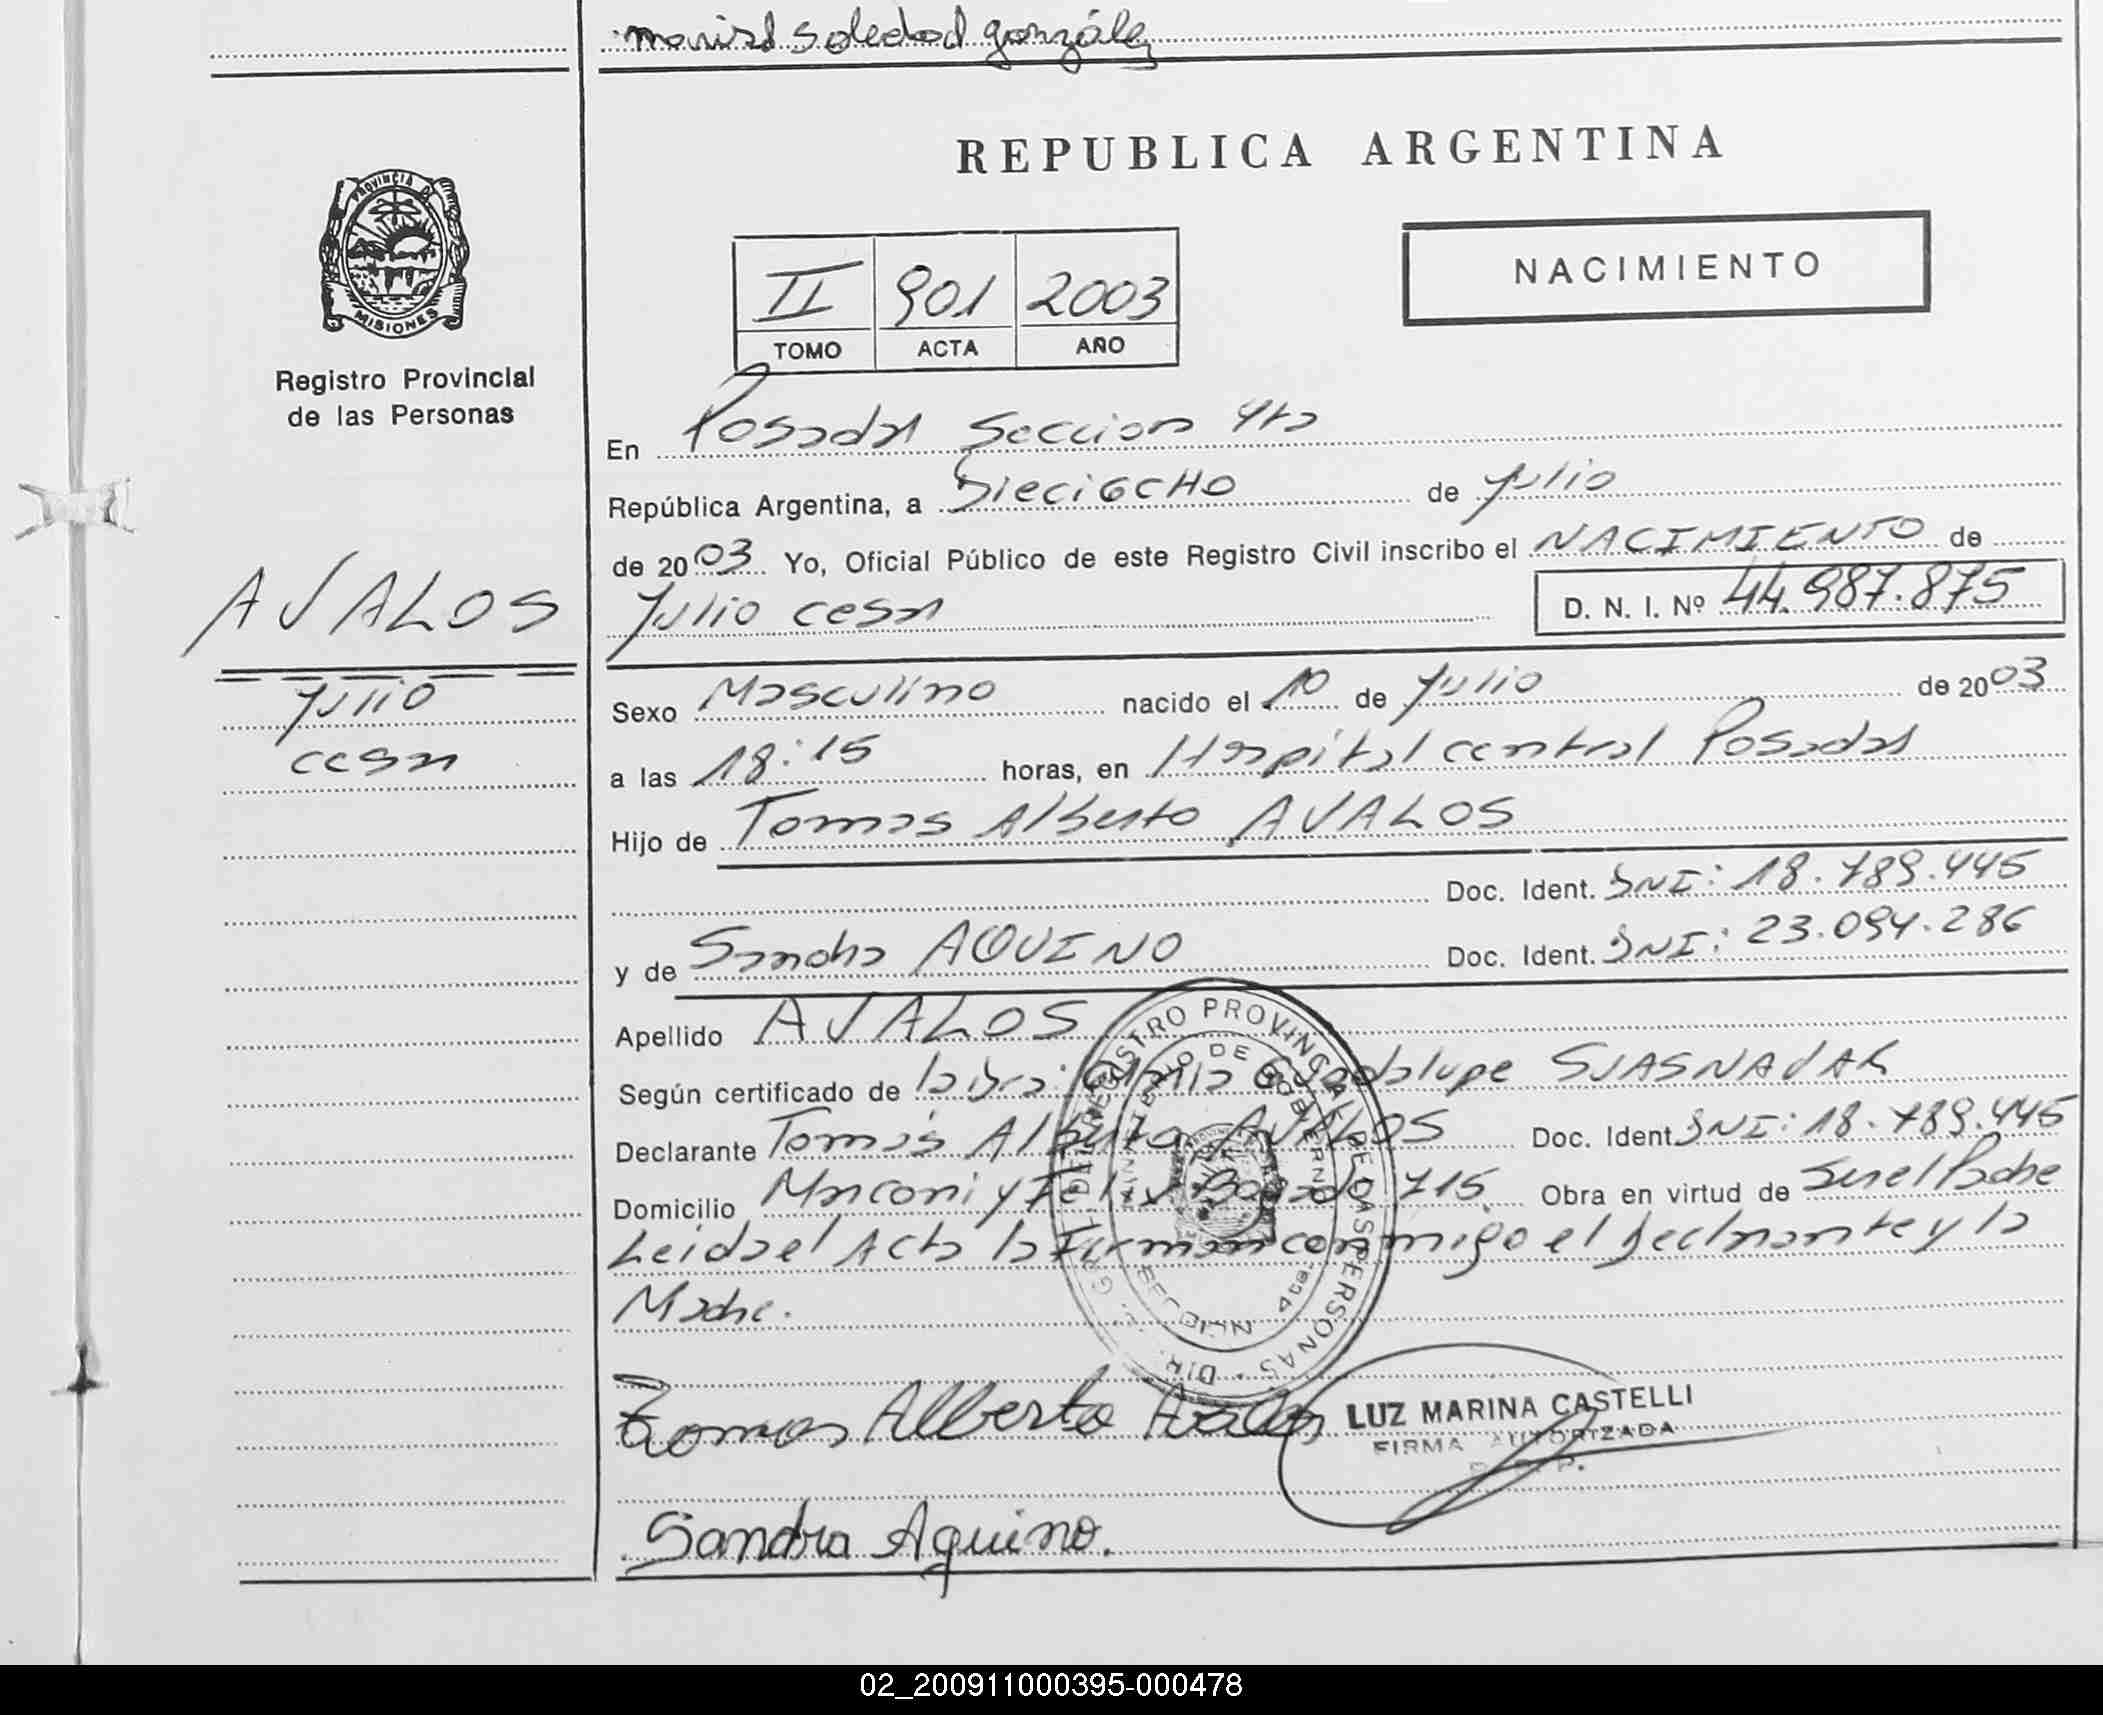 marisol soledad gonzález
REPUBLICA ARGENTINA
PROVINCIA DE
MISIONES
Registro Provincial
de las Personas
NACIMIENTO
II 901 2003
TOMO ACTA AÑO
En Posadas Seccion 4ta
República Argentina, a Dieciocho de Julio
de 2003 Yo, Oficial Público de este Registro Civil inscribo el NACIMIENTO de
Julio cesar D. N. I. Nº 44.987.875
AVALOS
Julio
cesar
Sexo Masculino nacido el 10 de Julio de 2003
a las 18:15 horas, en Hospital central Posadas
Hijo de Tomas Alberto AVALOS
Doc. Ident. DNI: 18.789.445
y de Sandra AQUINO Doc. Ident. DNI: 23.094.286
Apellido AVALOS
Según certificado de la Dra: Guadalupe
Declarante Tomas Alberto AVALOS Doc. Ident DNI: 18.789.445
Domicilio Marconi y Felix Bogado 715 Obra en virtud de Ser el Padre
Leida el Acta la Firman conmigo el declarante y la
Madre.
REGISTRO PROVINCIAL DE LAS PERSONAS - DIR. GRL. DEL
Tomas Alberto Avalos
LUZ MARINA CASTELLI
FIRMA AUTORIZADA
Sandra Aquino.
02_200911000395-000478